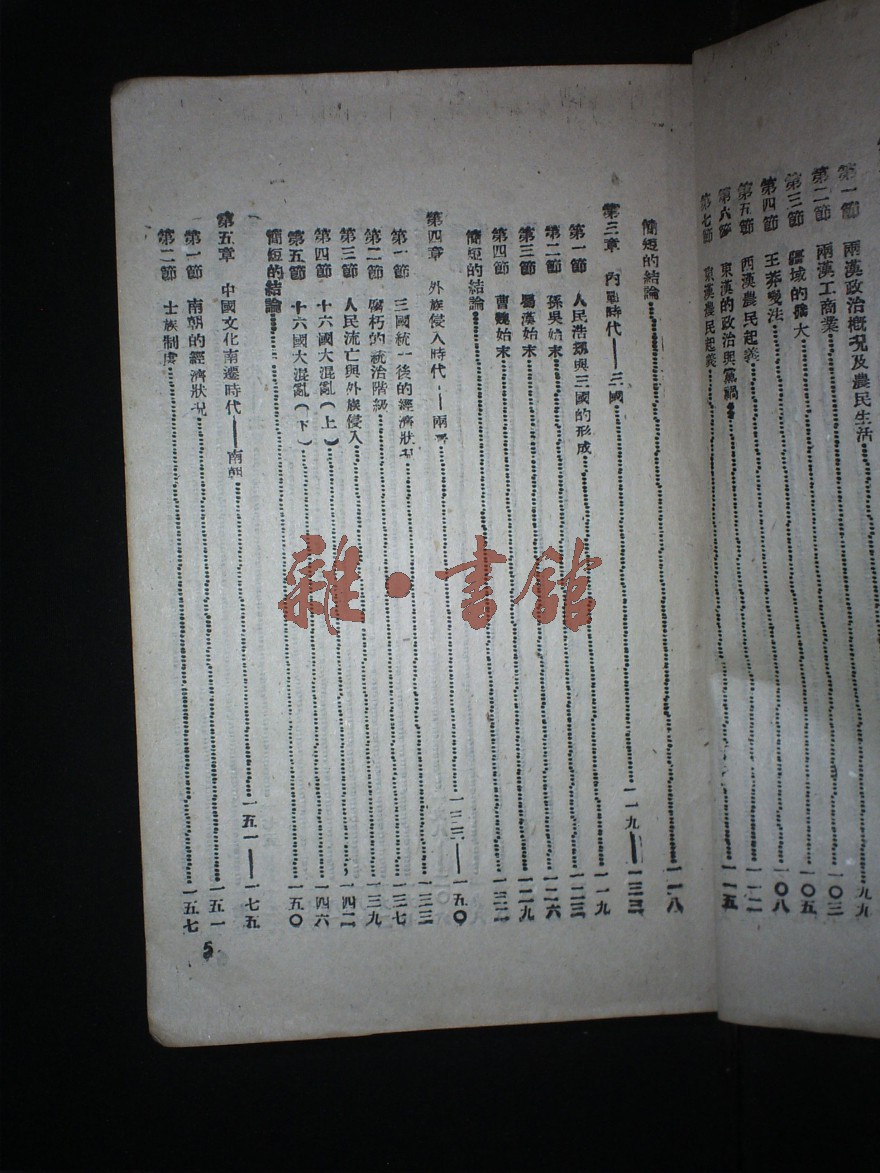 第一節 兩漢政治概況及農民生活 九九
第二節 兩漢工商業 一〇三
第三節 疆域的擴大 一〇五
第四節 王莽變法 一〇八
第五節 西漢農民起義 一一二
第六節 東漢的政治與黨禍 一一五
第七節 東漢農民起義
簡短的結論 一一八
第三章 內戰時代——三國 一一九——一三三
第一節 人民浩劫與三國的形成 一一九
第二節 孫吳始末 一二三
第三節 蜀漢始末 一二六
第四節 曹魏始末 一二九
簡短的結論 一三二
第四章 外族侵入時代——兩晋 一三三——一五〇
第一節 三國統一後的經濟狀況 一三三
第二節 腐朽的統治階級 一三七
第三節 人民流亡與外族侵入 一三九
第四節 十六國大混亂(上) 一四二
第五節 十六國大混亂(下) 一四六
簡短的結論 一五〇
第五章 中國文化南遷時代——南朝 一五一——一七五
第一節 南朝的經濟狀況 一五一
第二節 士族制度 一五七
5
雜·書館